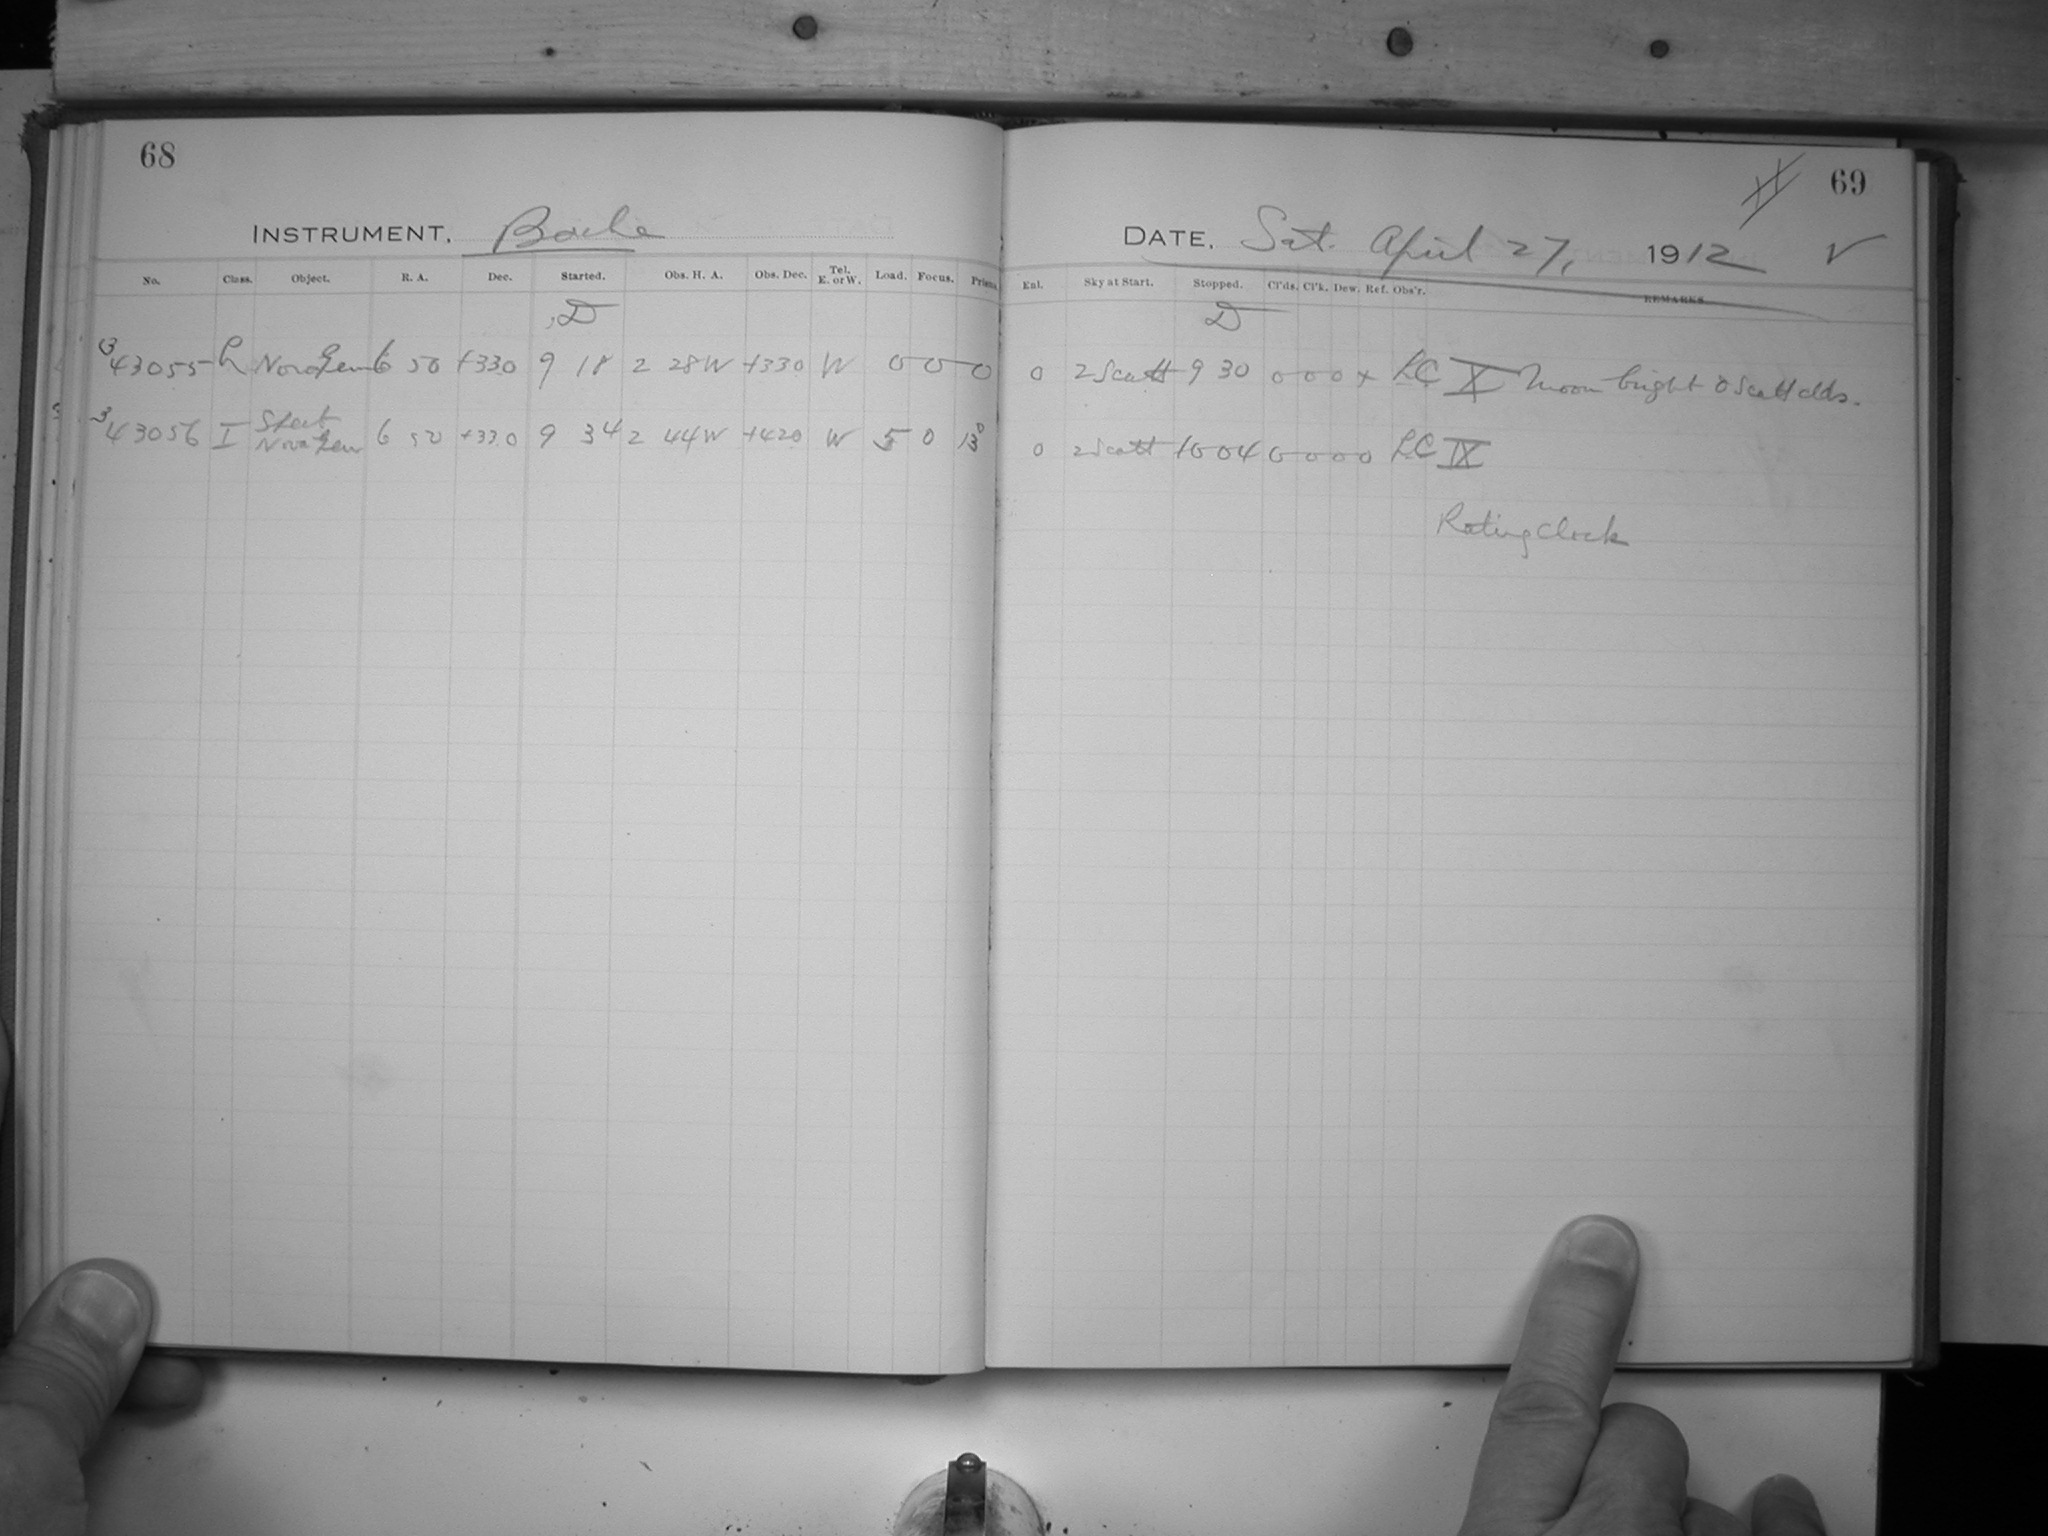 68
INSTRUMENT. Bache
No. Class. Object. R. A. Dec. Started. Obs. H. A. Obs. Dec. Tel. E. or W. Load. Focus. Prism.
D
3 43055 L Nova Gem 6 50 +33.0 9 18 2 28W +33.0 W 0 0 0
3 43056 I Spect Nova Gem 6 50 +33.0 9 34 2 44W +42.0 W 5 0 13°
69
DATE. Sat. April 27, 1912 V
Enl. Sky at Start. Stopped. Cl'ds. Cl'k. Dew. Ref. Obs'r. REMARKS
D
0 2 Scatt 9 30 0 0 0 x LC X Moon bright & Scatt clds.
0 2 Scatt 10 04 0 0 0 0 LC IX
Rating Clock